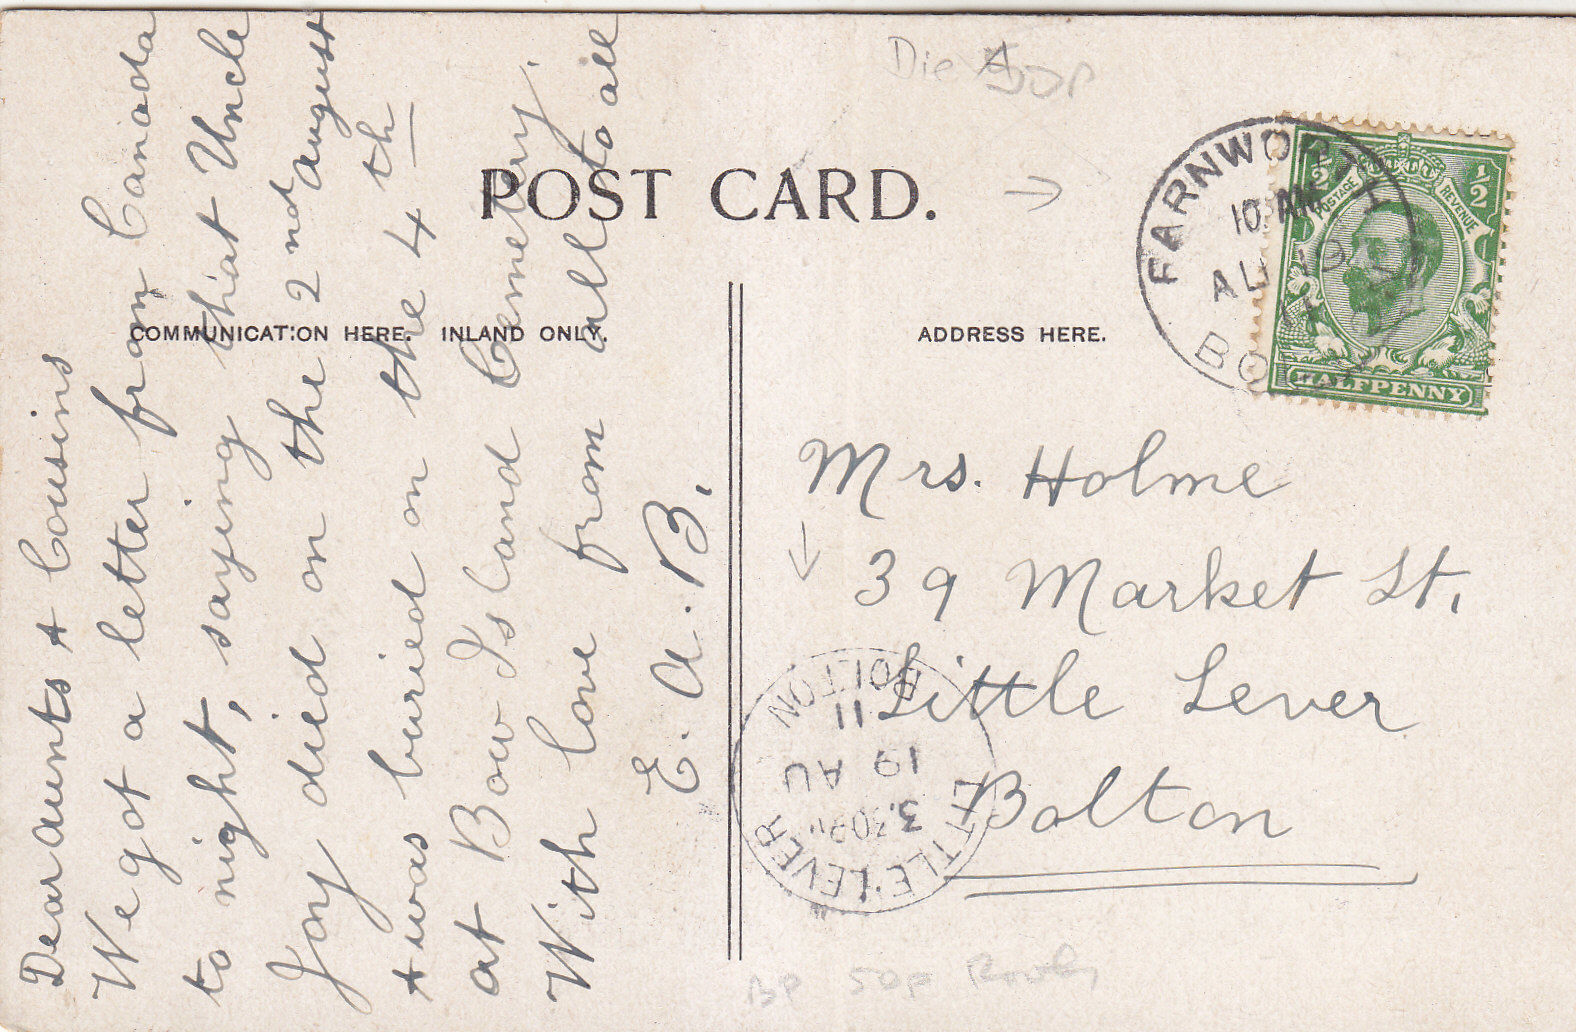 Die A
50P
POST CARD.
COMMUNICATION HERE. INLAND ONLY.
ADDRESS HERE.
Dear aunts & Cousins
We got a letter from Canada
to night, saying that Uncle
Joy died on the 2nd august
& was buried on the 4th
at Bow Island Cemetery.
With love from all to all
E. A. B.
FARNWORTH
10 AM
AU 19
11
BOLTON
1/2 1/2
POSTAGE REVENUE
HALFPENNY
Mrs. Holme
39 Market St,
Little Lever
Bolton
LITTLE LEVER
3.30PM
19 AU
11
BOLTON
BP 50p